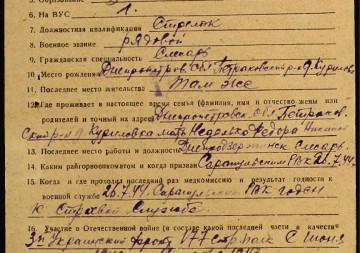 6. На ВУС 1.
7. Должностная квалификация Стрелок
8. Военное звание рядовой
9. Гражданская специальность Слесарь
10. Место рождения Днепропетров. Обл Петраковский р-н д. Куриловка
11. Последнее место жительства Там же
12. Где проживает в настоящее время семья (фамилия, имя и отчество жены или
родителей и точный их адрес) Днепропетровск. обл Петраков.
ский р-н д Куриловка мать Федора
13. Последнее место работы и должность Днепродзержинск слесарь.
14. Каким райгорвоенкоматом и когда призван РВК 26.7.44.
15. Когда и где проходил последний раз медкомиссию и результат годности к
военной службе 26.7.44. РВК годен
к строевой службе
16. Участие в Отечественной войне (в составе какой последней части в качестве
3й Украинский фронт 177 стр. полк с Июня